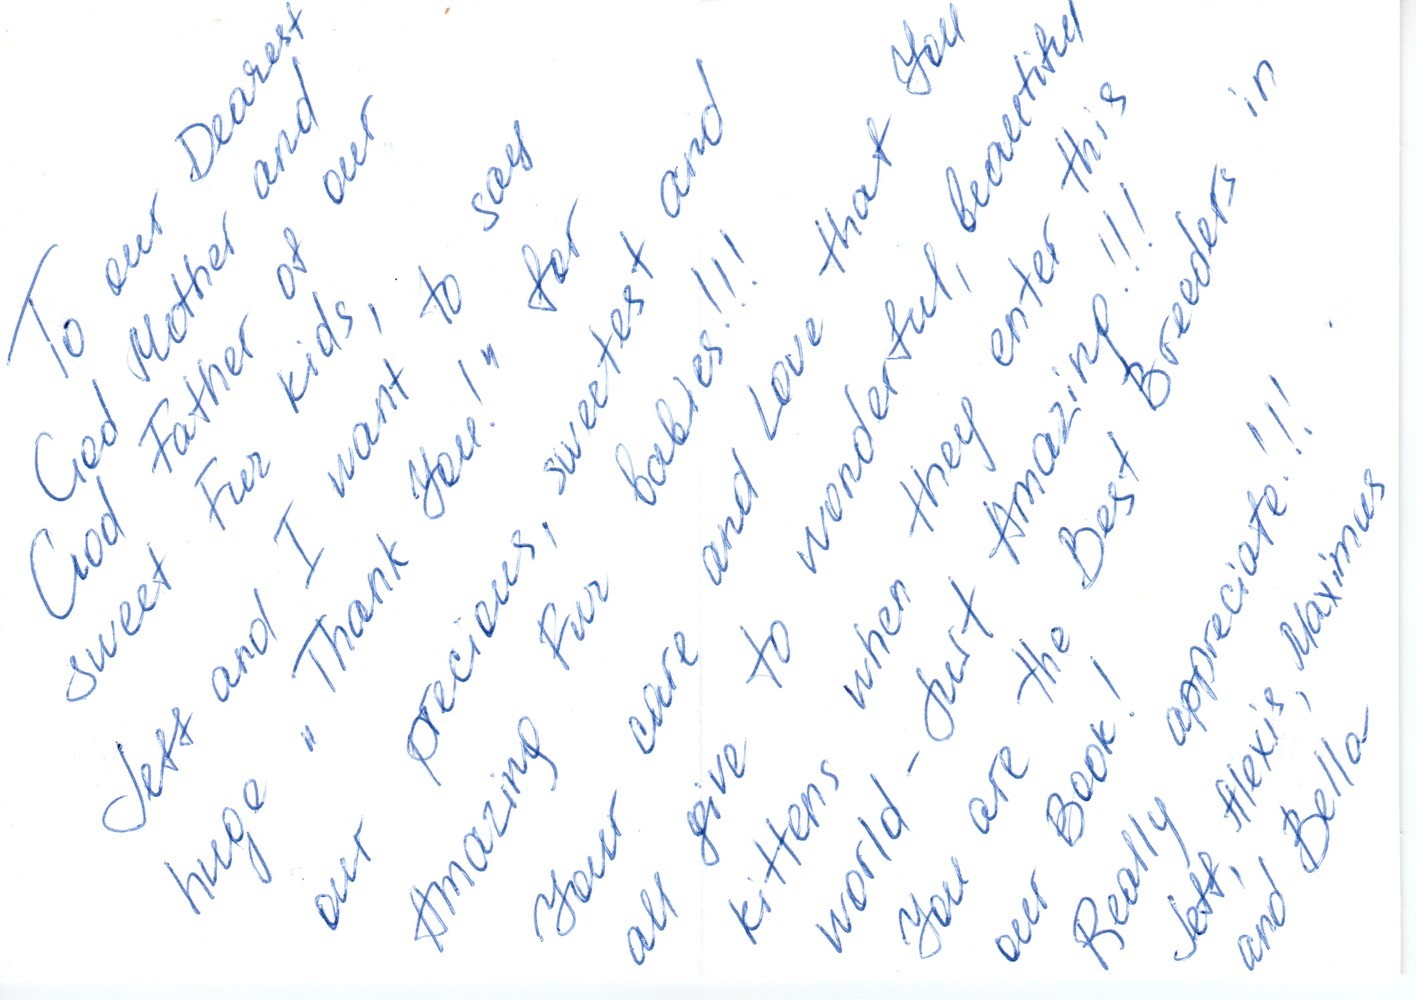 To our Dearest
God Mother and
God Father of our
sweet Fur kids,
Jeff and I want to say
huge "Thank You!" for
our precious, sweetest and
Amazing Fur babies!!!
Your care and Love that You
all give to wonderful, beautiful
kittens when they enter this
world - Just Amazing!!!
You are the Best Breeders in
our Book!
Really appreciate!!!
Jeff, Alexis, Maximus
and Bella